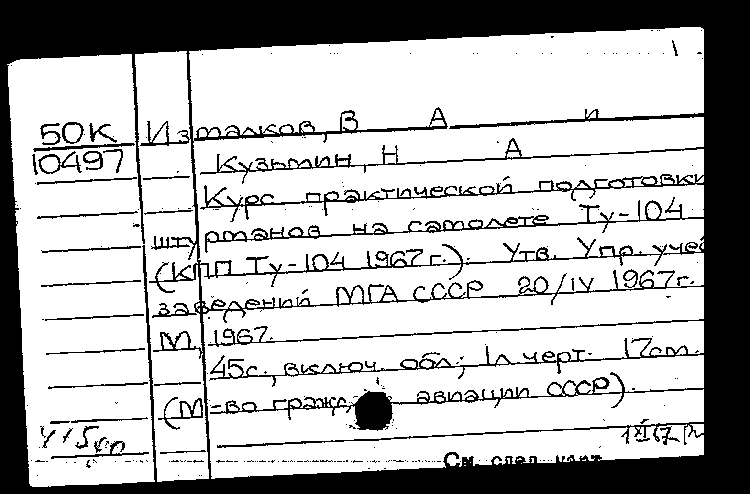 50К Измалков, В А и
10497 Кузьмин, Н А
Курс практической подготовки
штурманов на самолете Ту-104
(КПП Ту-104 1967г.). Утв. Упр. учеб
заведений МГА СССР 20/IV 1967г.
М, 1967.
45с., включ. обл; 1л черт. 17см.
(М-во гражд. авиации СССР).
1 XI 67
См. след. карт.